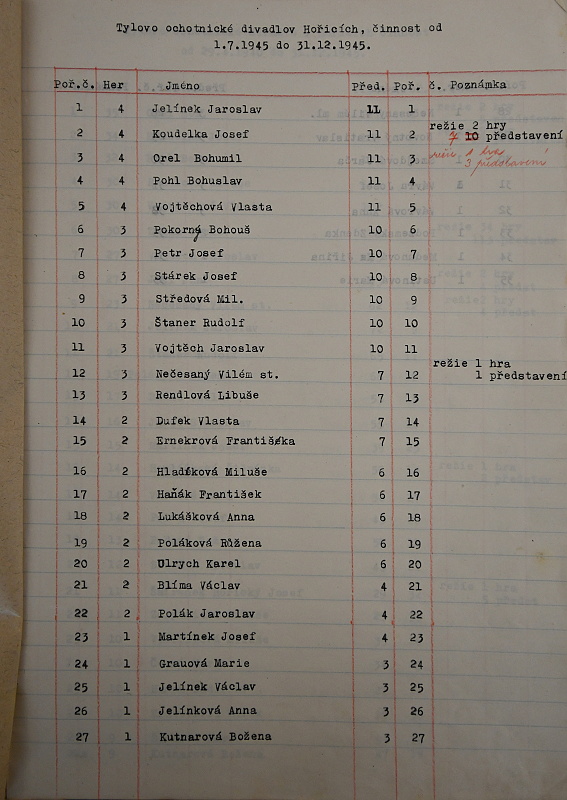 Tylovo ochotnické divadlov Hořicích, činnost od
1.7.1945 do 31.12.1945.
Poř.č. Her Jméno Před. Poř. č. Poznámka
1 4 Jelínek Jaroslav 11 1
režie 2 hry
2 4 Koudelka Josef 11 2 7 10 představení
3 4 Orel Bohumil 11 3 režie 1 hra
3 představení
4 4 Pohl Bohuslav 11 4
5 4 Vojtěchová Vlasta 11 5
6 3 Pokorný Bohouš 10 6
7 3 Petr Josef 10 7
8 3 Stárek Josef 10 8
9 3 Středová Mil. 10 9
10 3 Štaner Rudolf 10 10
11 3 Vojtěch Jaroslav 10 11
režie 1 hra
12 3 Nečesaný Vilém st. 7 12 1 představení
13 3 Rendlová Libuše 7 13
14 2 Dufek Vlasta 7 14
15 2 Ernekrová Františka 7 15
16 2 Hladíková Miluše 6 16
17 2 Haňák František 6 17
18 2 Lukášková Anna 6 18
19 2 Poláková Růžena 6 19
20 2 Ulrych Karel 6 20
21 2 Blíma Václav 4 21
22 2 Polák Jaroslav 4 22
23 1 Martínek Josef 4 23
24 1 Grauová Marie 3 24
25 1 Jelínek Václav 3 25
26 1 Jelínková Anna 3 26
27 1 Kutnarová Božena 3 27